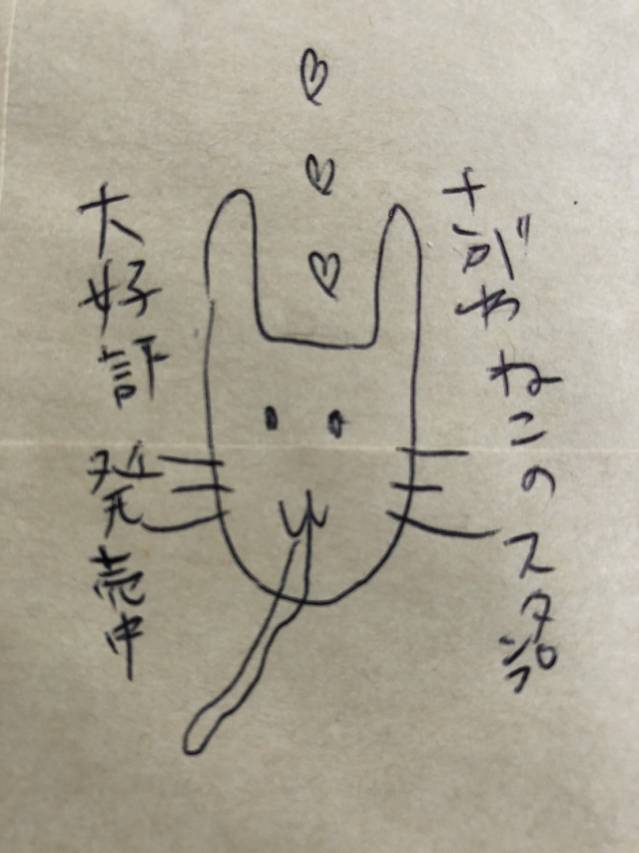 ながやねこのスタンプ
大好評発売中